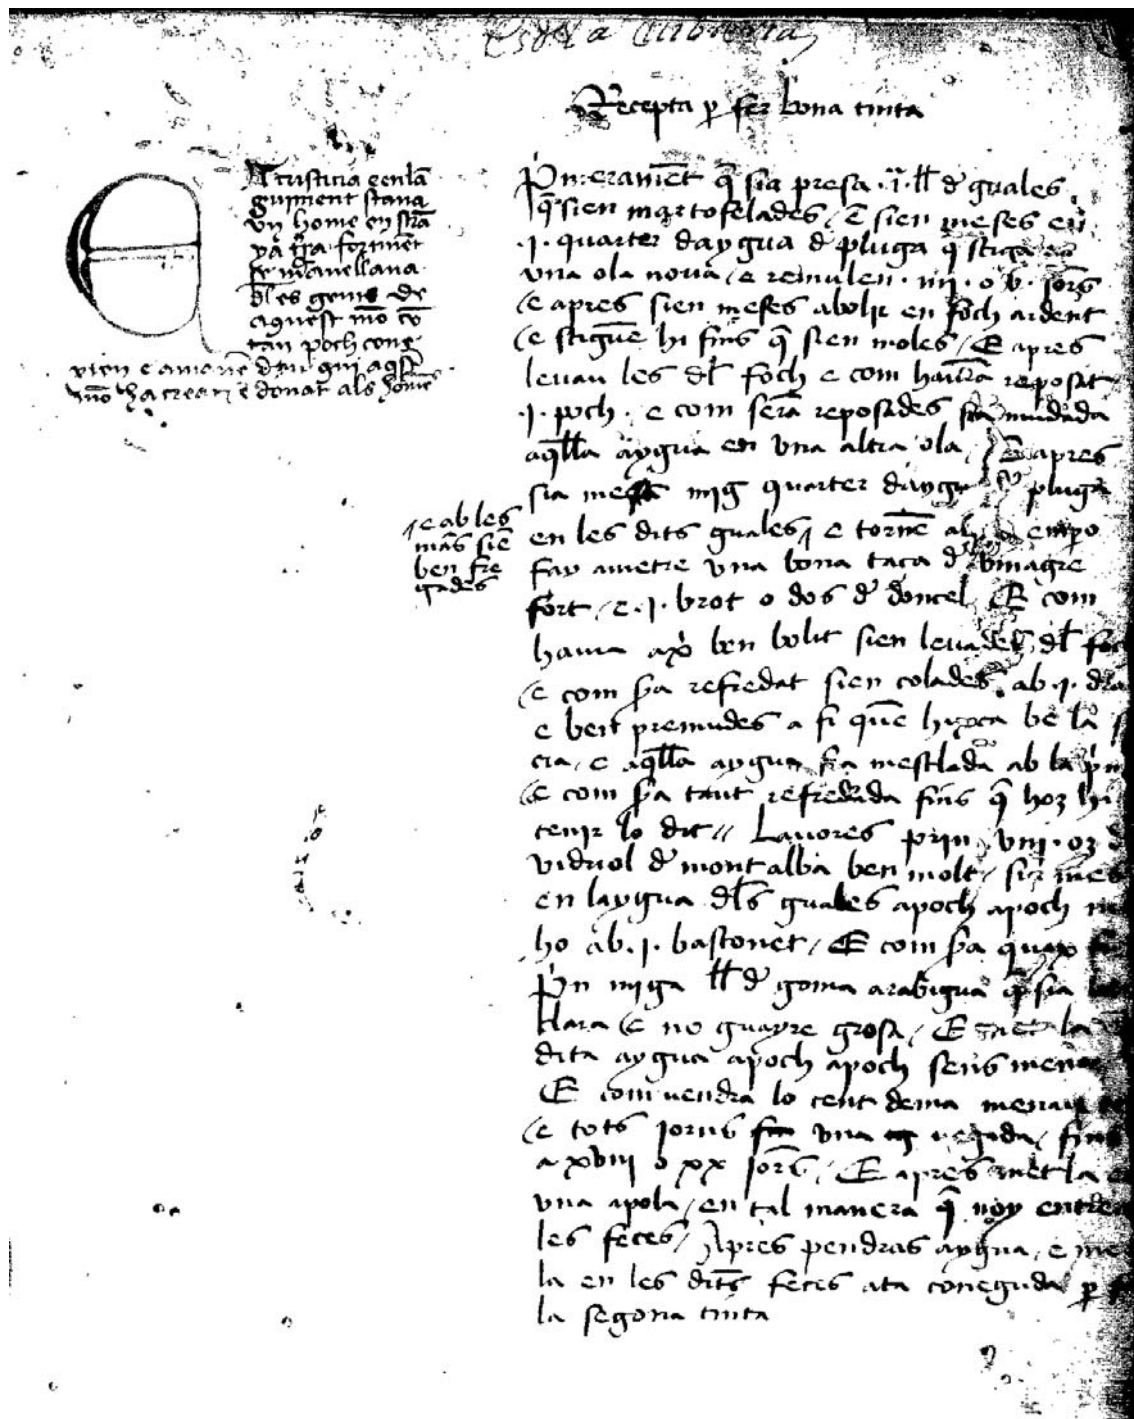 Es de la libreria
Recepta p fer bona tinta
A tristicia e en lã
guiment staua
vn home en strã
ya trra fortmẽt
se mãuellaua
dles gens de
aquest mõ cõ
tan poch cong
xien e amauẽ deu qui aqst
mõ ha creat e donat als homẽs
Primeramẽt q̃ sia presa .i. ll de guales
q̃ sien martofelades / E sien meses en
.i. quarter daygua d pluga q̃ stiga en
vna ola noua / e remulen .iiii. o v. jorns
/ e apres sien meses a bolir en foch ardent
/ e stiguẽ hi fins q̃ sien moles / E apres
leuau les dl foch e com haurã reposat
.i. poch . e com serã reposades sia mudada
aqlla aygua en vna altra ola / E apres
sia mesa mig quarter daygua d pluga
/ e ab les
mãs siẽ
ben fre
gades
en les dits guales / e tornẽ al
fay a metre vna bona taça d vinagre
fort / e .i. brot o dos d doncel / E com
haura axi ben bolit sien leuades dl foc
/ e com sra refredat sien colades ab .i. dra
e ben premudes a fi quẽ hixca be la
cra / e aqlla aygua sia mesclada ab la prim
/ e com sra tant refredada fins q̃ hoz hi
tenir lo dit // Lauores prin viii. oz d
vidriol d montalba ben molt / sia mes
en laygua dls guales apoch apoch
ho ab .i. bastonet / E com sra quax
Prin miga ll d goma arabigua q̃ sia
clara / e no guayre grosa / E la
dita aygua apoch apoch sens mena
E com vendra lo cent dema menau
/ e tots jorns vna vegada / fins
a xviii o xx jorns / E apres met la
vna apola / en tal manera q̃ noy entre
les feces / Apres pendras aygua / e me
la en les dits feces ata coneguda p f
la segona tinta